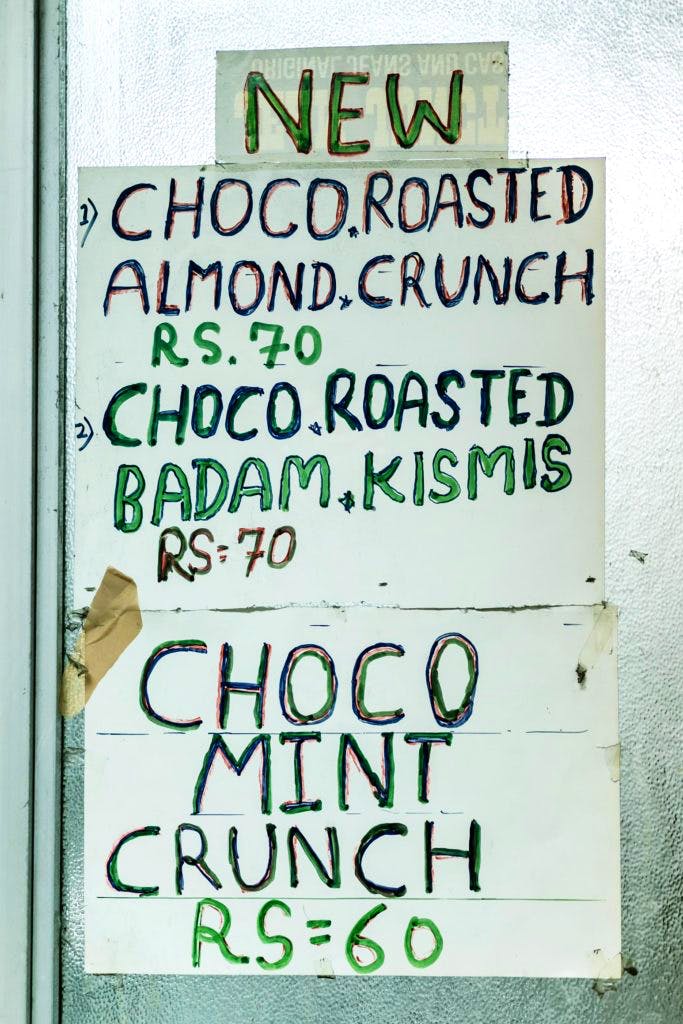 ORIGINAL JEANS AND CAS
NEW
1) CHOCO.ROASTED
ALMOND.CRUNCH
RS.70
2) CHOCO.ROASTED
BADAM.KISMIS
RS=70
CHOCO
MINT
CRUNCH
RS=60